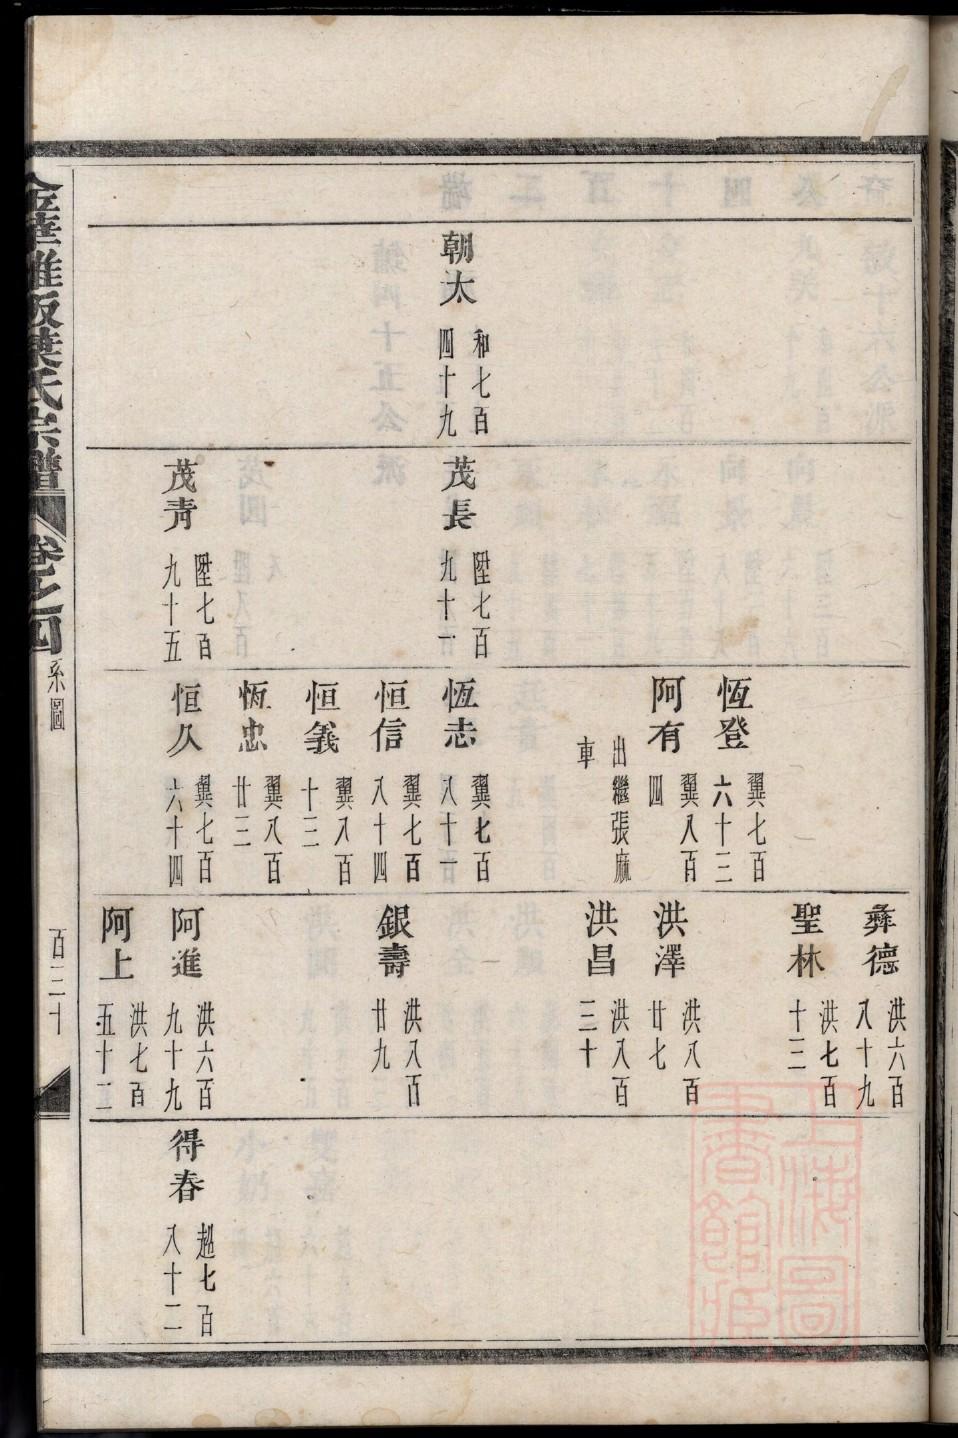 朝太
和七百
四十九
茂長
陞七百
九十一
茂靑
陞七百
九十五
恆登
翼七百
六十三
阿有
翼八百
四
出繼張麻
車
恆志
翼七百
八十一
恒信
翼七百
八十四
恒義
翼八百
十三
恆忠
翼八百
廿三
恒久
翼七百
六十四
彝德
洪六百
八十九
聖林
洪七百
十三
洪澤
洪八百
廿七
洪昌
洪八百
三十
銀壽
洪八百
廿九
阿進
洪六百
九十九
阿上
洪七百
五十三
得春
超七百
八十二
葉氏宗譜
卷之四
系圖
百三十
上海圖
書館藏